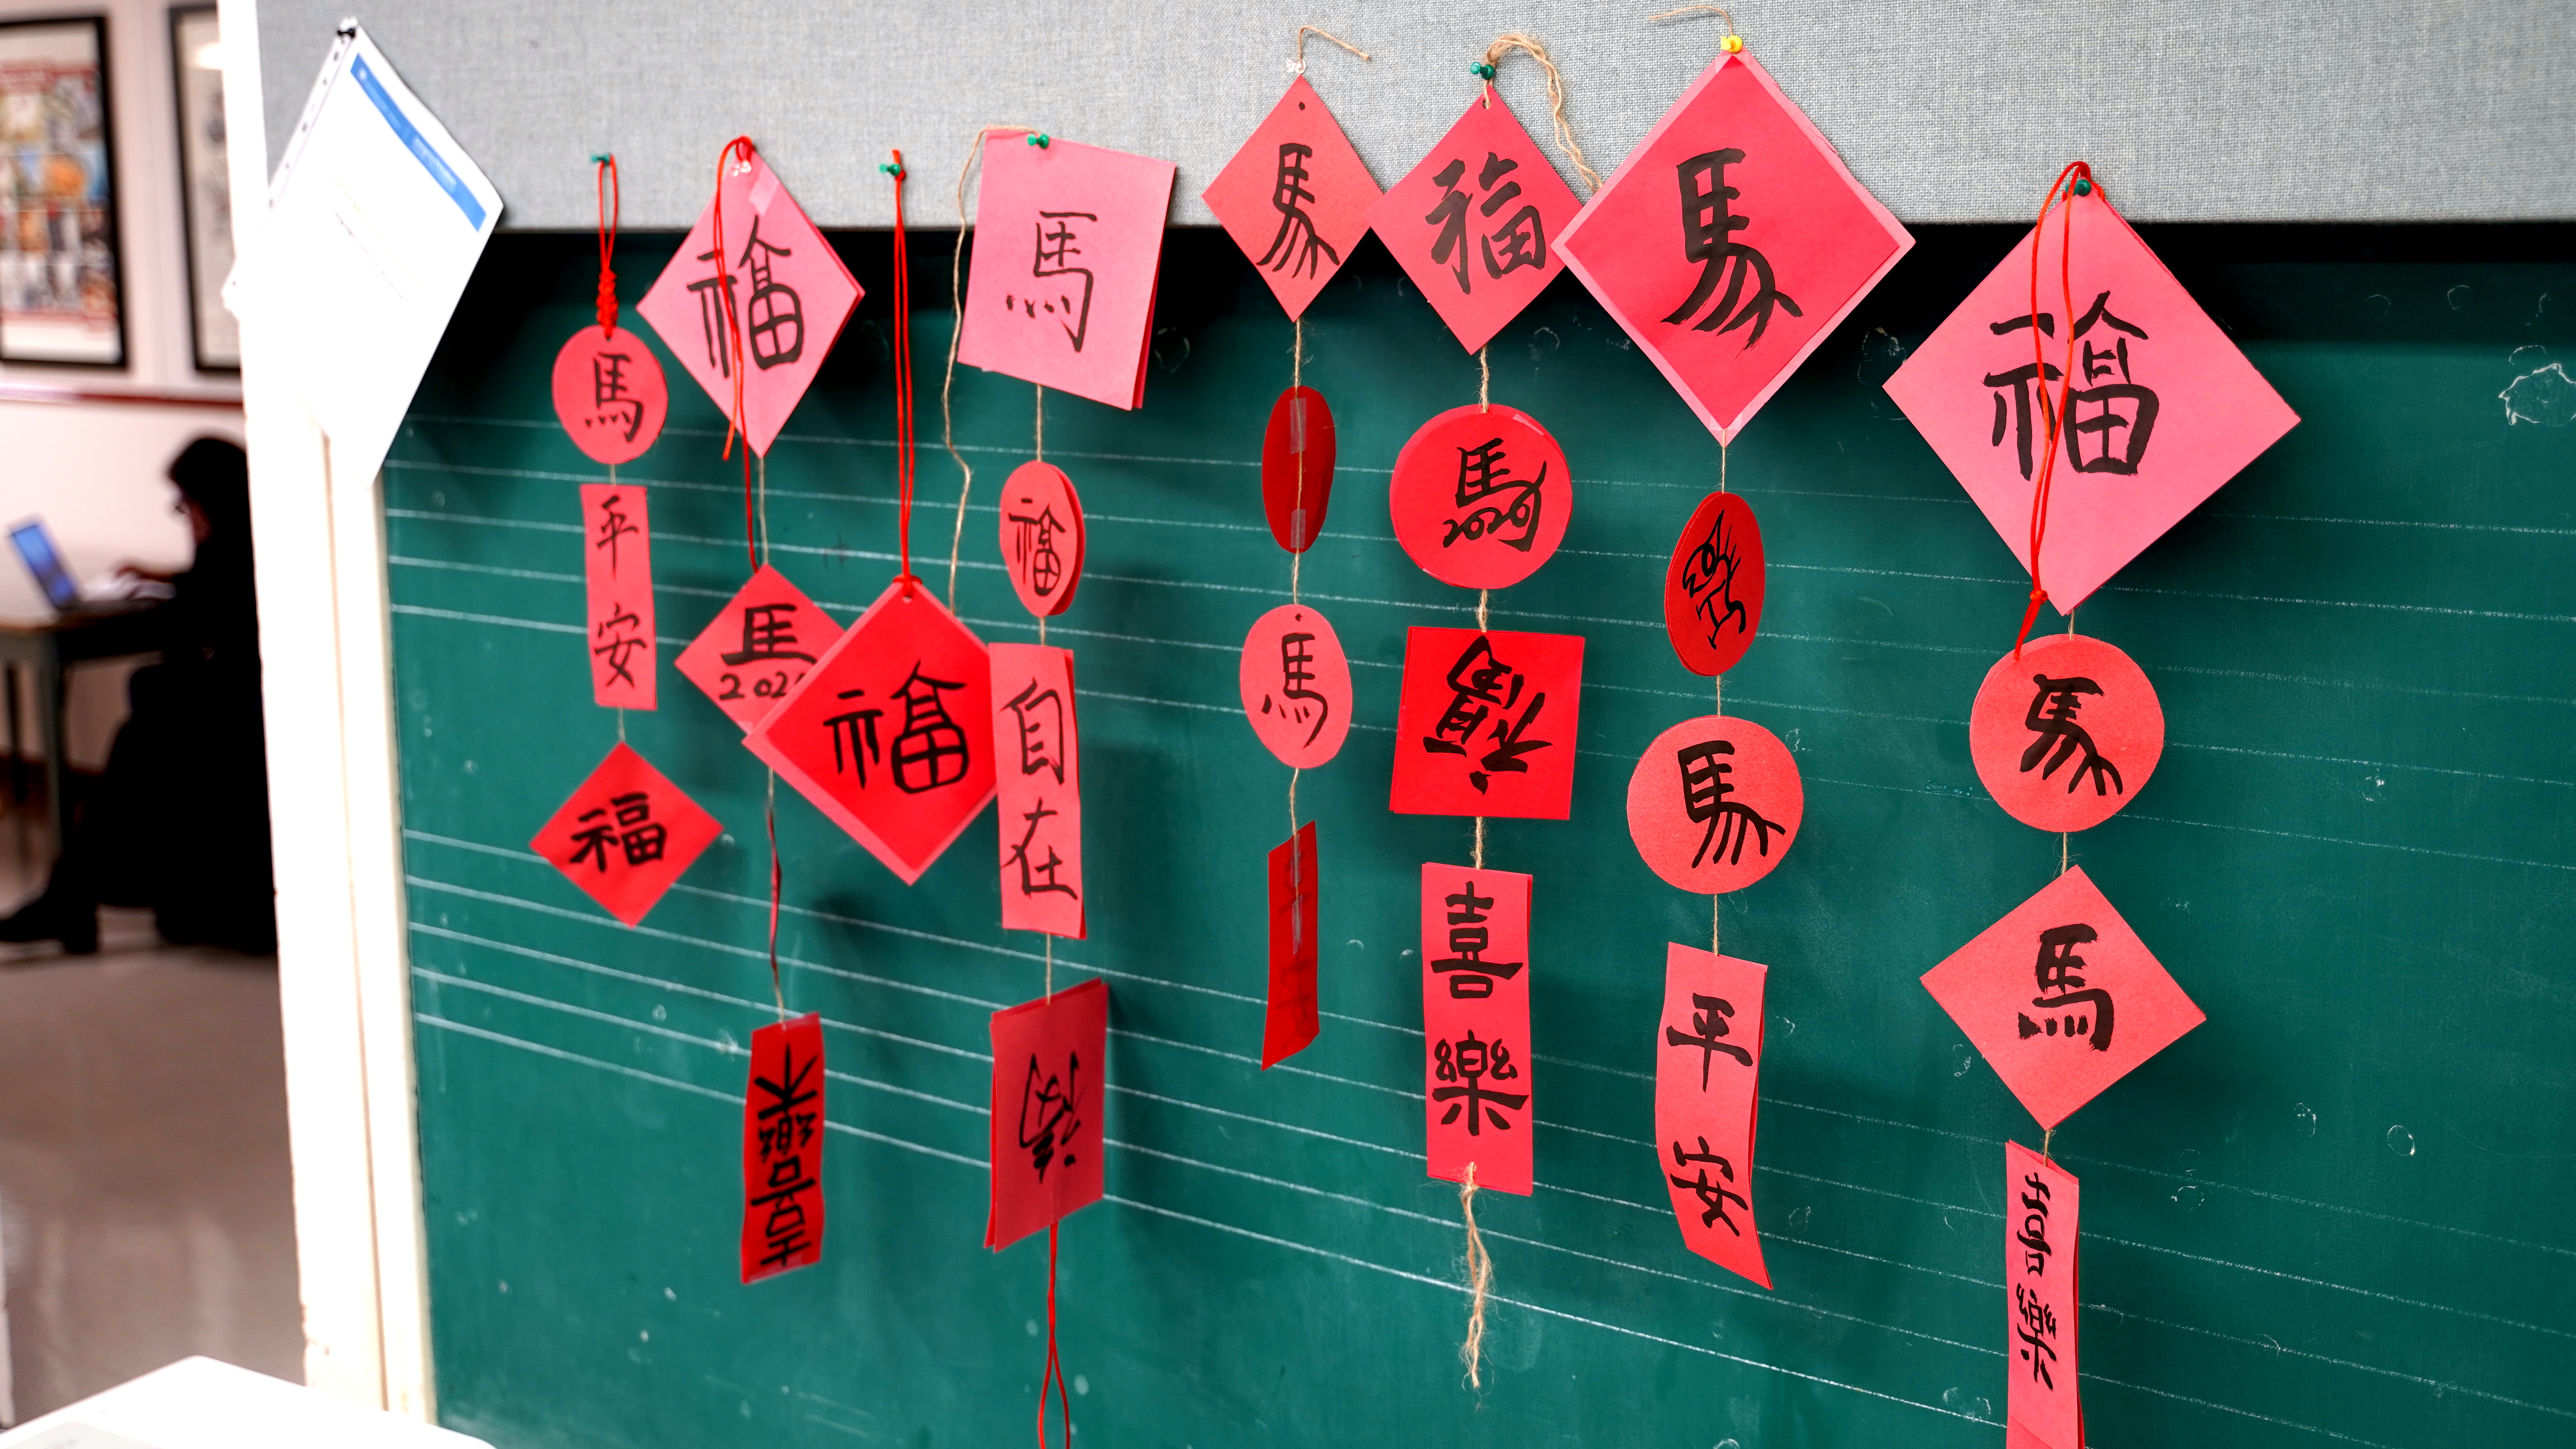 馬
平
安
福
福
馬
2026
喜
樂
福
馬
福
自
在
福
馬
馬
福
馬
2026
福
喜
樂
馬
馬
平
安
福
馬
馬
喜
樂